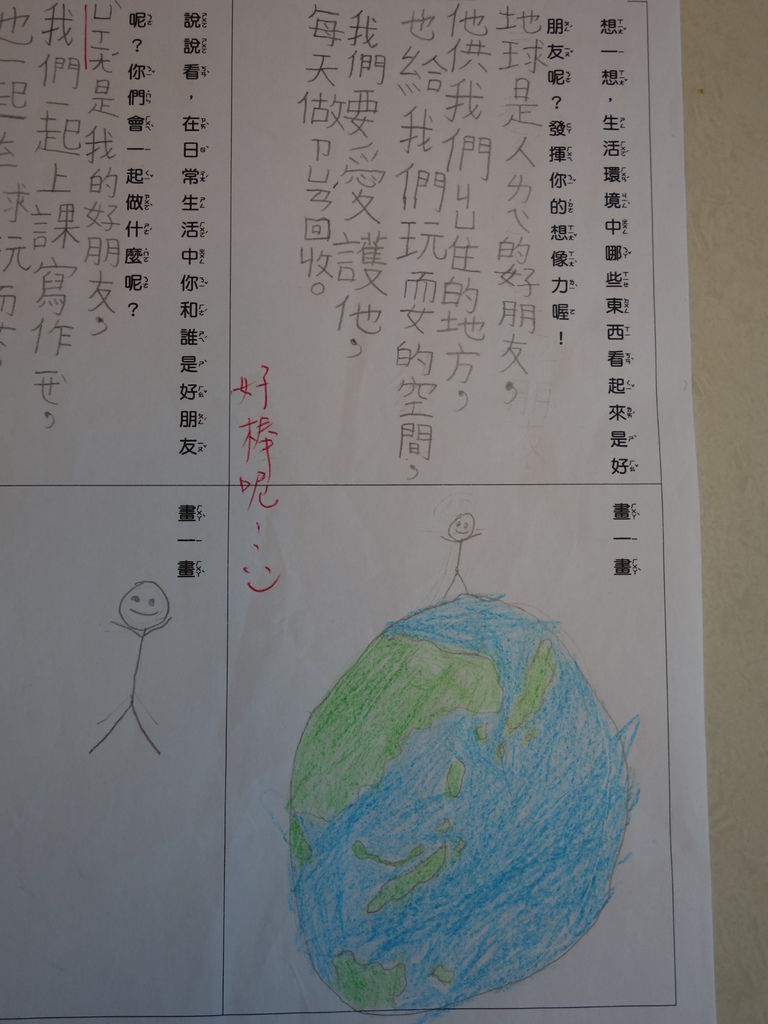 想一想，生活環境中哪些東西看起來是好
朋友呢？發揮你的想像力喔！
地球是人ㄌㄟˋ的好朋友，
他供我們ㄐㄩ住的地方，
也給我們玩耍的空間，
我們要愛護他，
每天做回收。
好棒呢
畫一畫
說說看，在日常生活中你和誰是好朋友
呢？你們會一起做什麼呢？
是我的好朋友，
我們一起上課寫作ㄧㄝ，
也一起球玩
畫一畫